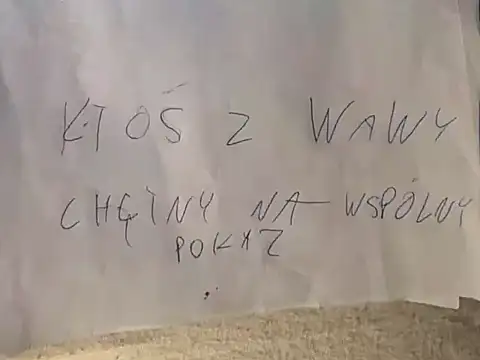 KTOŚ Z WAWY
CHĘTNY NA WSPÓLNY
POKAZ